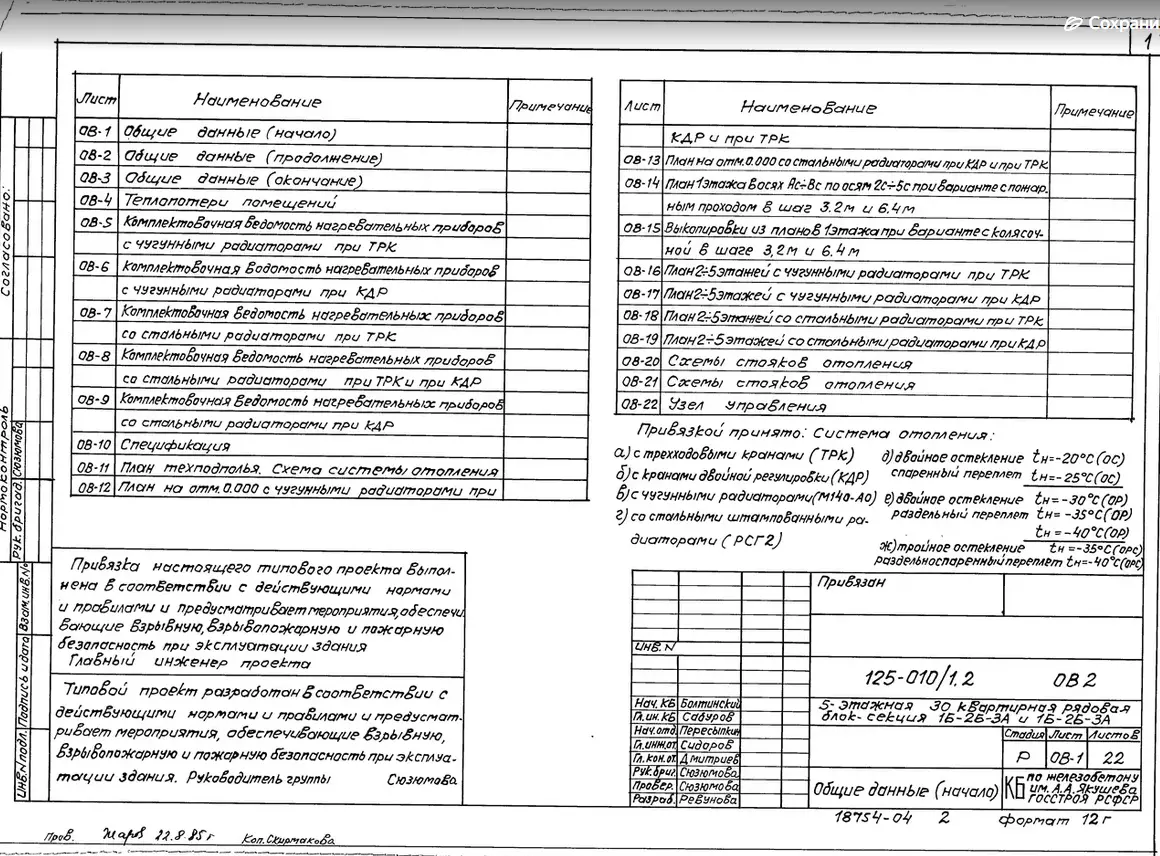 Сохрани
1
Лист Наименование Примечание
ОВ-1 Общие данные (начало)
ОВ-2 Общие данные (продолжение)
ОВ-3 Общие данные (окончание)
ОВ-4 Теплопотери помещений
ОВ-5 Комплектовочная ведомость нагревательных приборов
с чугунными радиаторами при ТРК
ОВ-6 Комплектовочная водомость нагревательных приборов
с чугунными радиаторами при КДР
ОВ-7 Комплектовочная ведомость нагревательных приборов
со стальными радиаторами при ТРК
ОВ-8 Комплектовочная ведомость нагревательных приборов
со стальными радиаторами при ТРК и при КДР
ОВ-9 Комплектовочная ведомость нагревательных приборов
со стальными радиаторами при КДР
ОВ-10 Спецификация
ОВ-11 План техподполья. Схема системы отопления
ОВ-12 План на отм. 0.000 с чугунными радиаторами при
Лист Наименование Примечание
КДР и при ТРК
ОВ-13 План на отм. 0.000 со стальными радиаторами при КДР и при ТРК
ОВ-14 План 1 этажа в осях Ас÷Вс по осям 2с÷5с при варианте с пожар.
ным проходом в шаг 3.2м и 6.4м
ОВ-15 Выкопировки из планов 1 этажа при варианте с колясоч-
ной в шаге 3,2м и 6.4м
ОВ-16 План 2÷5 этажей с чугунными радиаторами при ТРК
ОВ-17 План 2÷5 этажей с чугунными радиаторами при КДР
ОВ-18 План 2÷5 этажей со стальными радиаторами при ТРК
ОВ-19 План 2÷5 этажей со стальными радиаторами при КДР
ОВ-20 Схемы стояков отопления
ОВ-21 Схемы стояков отопления
ОВ-22 Узел управления
Привязкой принято: Система отопления:
а) с трехходовыми кранами (ТРК)
б) с кранами двойной регулировки (КДР)
в) с чугунными радиаторами (М140-АО)
г) со стальными штампованными ра-
диаторами (РСГ2)
д) двойное остекление tн=-20°С (ОС)
спаренный переплет tн=-25°С (ОС)
е) двойное остекление tн=-30°С (ОР)
раздельный переплет tн=-35°С (ОР)
tн=-40°С (ОР)
ж) тройное остекление tн=-35°С (ОРС)
раздельноспаренный переплет tн=-40°С (ОРС)
Привязка настоящего типового проекта выпол-
нена в соответствии с действующими нормами
и правилами и предусматривает мероприятия, обеспечи
вающие взрывную, взрывопожарную и пожарную
безопасность при эксплуатации здания
Главный инженер проекта
Типовой проект разработан в соответствии с
действующими нормами и правилами и предусмат.
ривает мероприятия, обеспечивающие взрывную,
взрывопожарную и пожарную безопасность при эксплуа-
тации здания. Руководитель группы Сюзюмова
Согласовано:
Нормоконтроль
Рук. бригад. Сюзюмова
Инв.N подл. Подпись и дата Взам.инв.N
Привязан
Инв. N
125-010/1.2 ОВ2
5-этажная 30 квартирная рядовая
блок-секция 1Б-2Б-3А и 1Б-2Б-3А
Нач. КБ Болтинский
Гл. ин. КБ Сабуров
Нач. отд. Пересыпкин
Гл. инж. от. Сидоров
Гл. кон. от. Дмитриев
Рук. бриг. Сюзюмова
Провер. Сюзюмова
Разраб. Ревунова
Стадия Лист Листов
Р ОВ-1 22
Общие данные (начало)
КБ по железобетону
им. А.А. Якушева
Госстроя РСФСР
18754-04 2 формат 12г
Пров. Жаров 22.8.85г Коп. Скирмакова